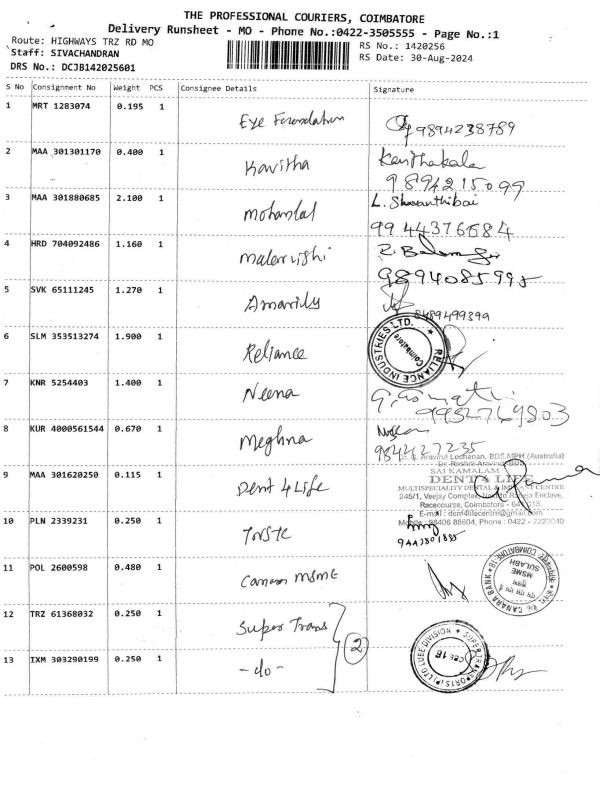 THE PROFESSIONAL COURIERS, COIMBATORE
Delivery Runsheet - MO - Phone No.:0422-3505555 - Page No.:1
Route: HIGHWAYS TRZ RD MO
RS No.: 1420256
Staff: SIVACHANDRAN
RS Date: 30-Aug-2024
DRS No.: DCJB142025601
S No Consignment No Weight PCS Consignee Details Signature
1 MRT 1283074 0.195 1 Eye Foundation 9894238789
2 MAA 301301170 0.400 1 Kavitha Kavithakala
9894215099
3 MAA 301880685 2.100 1 Mohanlal L. Sharanthibai
9944376684
4 HRD 704092486 1.160 1 R. Bala
9894085995
5 SVK 65111245 1.270 1 8489499399
6 SLM 353513274 1.900 1 Reliance RELIANCE INDUSTRIES LTD. Coimbatore
7 KNR 5254403 1.400 1 Neena G. Gomathi
9952769803
8 KUR 4000561544 0.670 1 Meghna
9842627235
9 MAA 301620250 0.115 1 Dent 4 Life
Aravind Lochanan, BDS, MPH (Australia)
Dr. Roshni Aravind, BDS
SAI KAMALAM
DENTA LIFE
MULTISPECIALITY DENTAL & IMPLANT CENTRE
245/1, Veejay Complex, Enclave,
Racecourse, Coimbatore -
E-mail : dent4lifecentre@gmail.com
Mobile : 98406 88604, Phone : 0422 - 2223040
10 PLN 2339231 0.250 1
11 POL 2600598 0.480 1 Canara MSME CANARA BANK MSME SULABH COIMBATORE-18
12 TRZ 61368032 0.250 1 Super Trans
2
SUPER TRANSPORTS (P) LTD LUBE DIVISION CBE-18
13 IXM 303290199 0.250 1 -do-